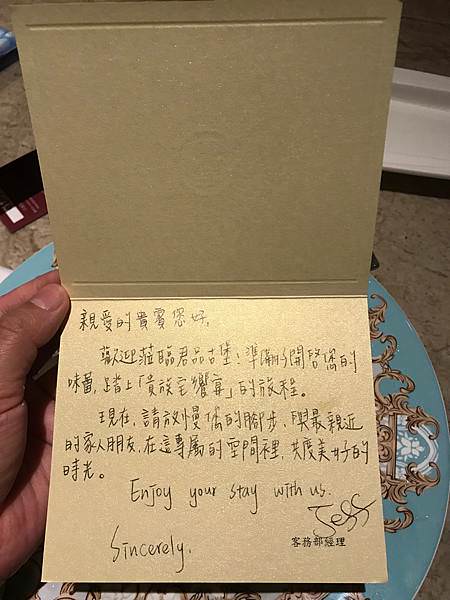 親愛的貴賓您好,
歡迎蒞臨君品古堡!準備好開啓您的
味蕾,踏上「貴族宅饗宴」的旅程。
現在,請放慢您的腳步,與最親近
的家人朋友,在這專屬的空間裡,共度美好的
時光。
Enjoy your stay with us.
Jeff
客務部經理
Sincerely.